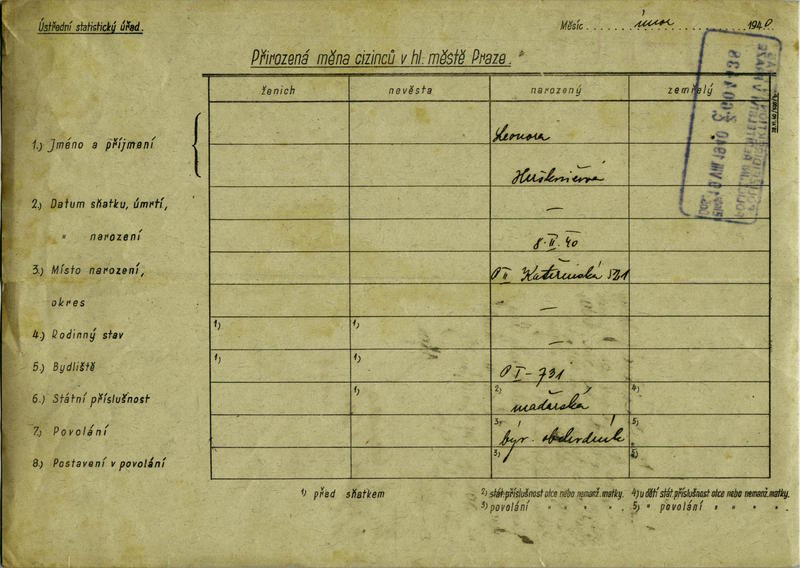 Ústřední statistický úřad.
Měsíc únor 1940
Přirozená měna cizinců v hl. městě Praze.
ženich nevěsta narozený zemřelý
1.) Jméno a příjmení Leonora
Herškovičová
2.) Datum sňatku, úmrtí, —
" narození 8. II. 40
3.) Místo narození, P II Kateřinská 521
okres —
4.) Rodinný stav 1) 1) —
5.) Bydliště 1) 1) P I - 731
6.) Státní příslušnost 1) 2) maďarská 4)
7.) Povolání 3) býv. 5)
8.) Postavení v povolání 3) 5)
1) před sňatkem
2) stát. příslušnost otce nebo nemanž. matky.
3) povolání " " " "
4) u dětí stát. příslušnost otce nebo nemanž. matky.
5) " povolání " " " "